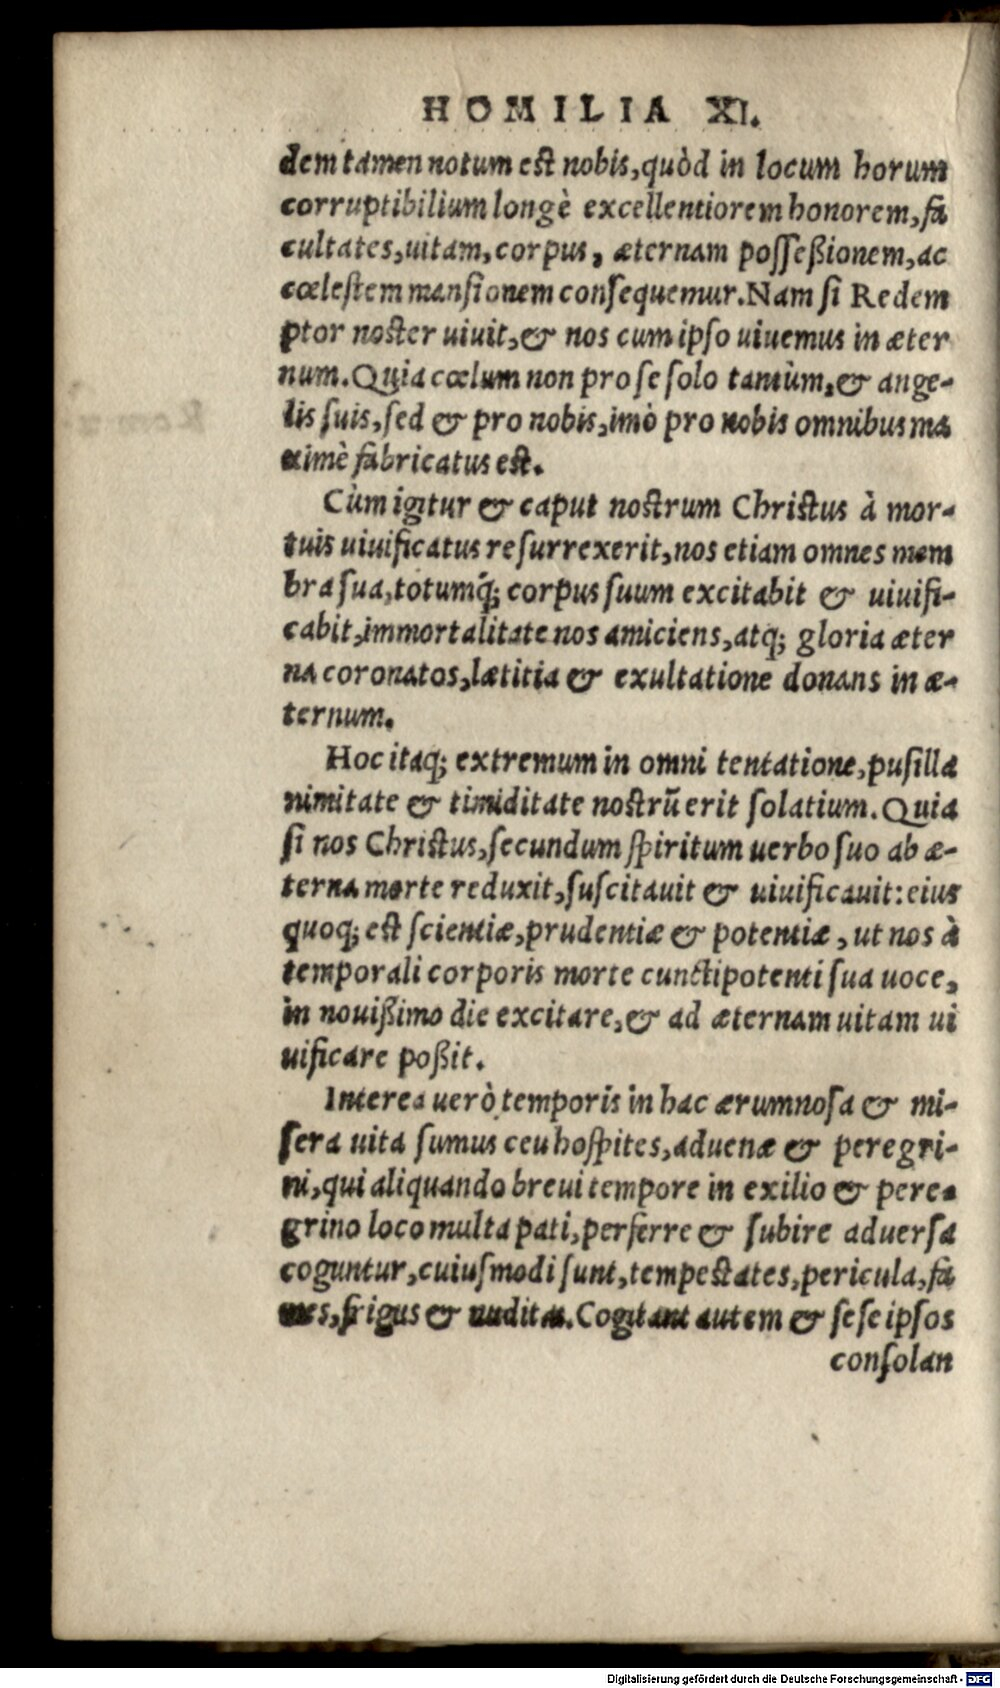 HOMILIA XI.
dem tamen notum est nobis, quòd in locum horum
corruptibilium longè excellentiorem honorem, fa
cultates, uitam, corpus, æternam posseßionem, ac
cœlestem mansionem consequemur. Nam si Redem
ptor noster uiuit, & nos cum ipso uiuemus in æter
num. Quia cœlum non pro se solo tantùm, & ange-
lis suis, sed & pro nobis, imò pro nobis omnibus ma
ximè fabricatus est.
Cùm igitur & caput nostrum Christus à mor-
tuis uiuificatus resurrexerit, nos etiam omnes mem
bra sua, totumq́; corpus suum excitabit & uiuifi-
cabit, immortalitate nos amiciens, atq; gloria æter
na coronatos, lætitia & exultatione donans in æ-
ternum.
Hoc itaq; extremum in omni tentatione, pusilla
nimitate & timiditate nostrũ erit solatium. Quia
si nos Christus, secundum spiritum uerbo suo ab æ-
terna morte reduxit, suscitauit & uiuificauit: eius
quoq; est scientiæ, prudentiæ & potentiæ, ut nos à
temporali corporis morte cunctipotenti sua uoce,
in nouißimo die excitare, & ad æternam uitam ui
uificare poßit.
Interea uerò temporis in hac ærumnosa & mi-
sera uita sumus ceu hospites, aduenæ & peregri-
ni, qui aliquando breui tempore in exilio & pere-
grino loco multa pati, perferre & subire aduersa
coguntur, cuiusmodi sunt, tempestates, pericula, fa
mes, frigus & nuditas. Cogitant autem & sese ipsos
consolan
Digitalisierung gefördert durch die Deutsche Forschungsgemeinschaft - DFG